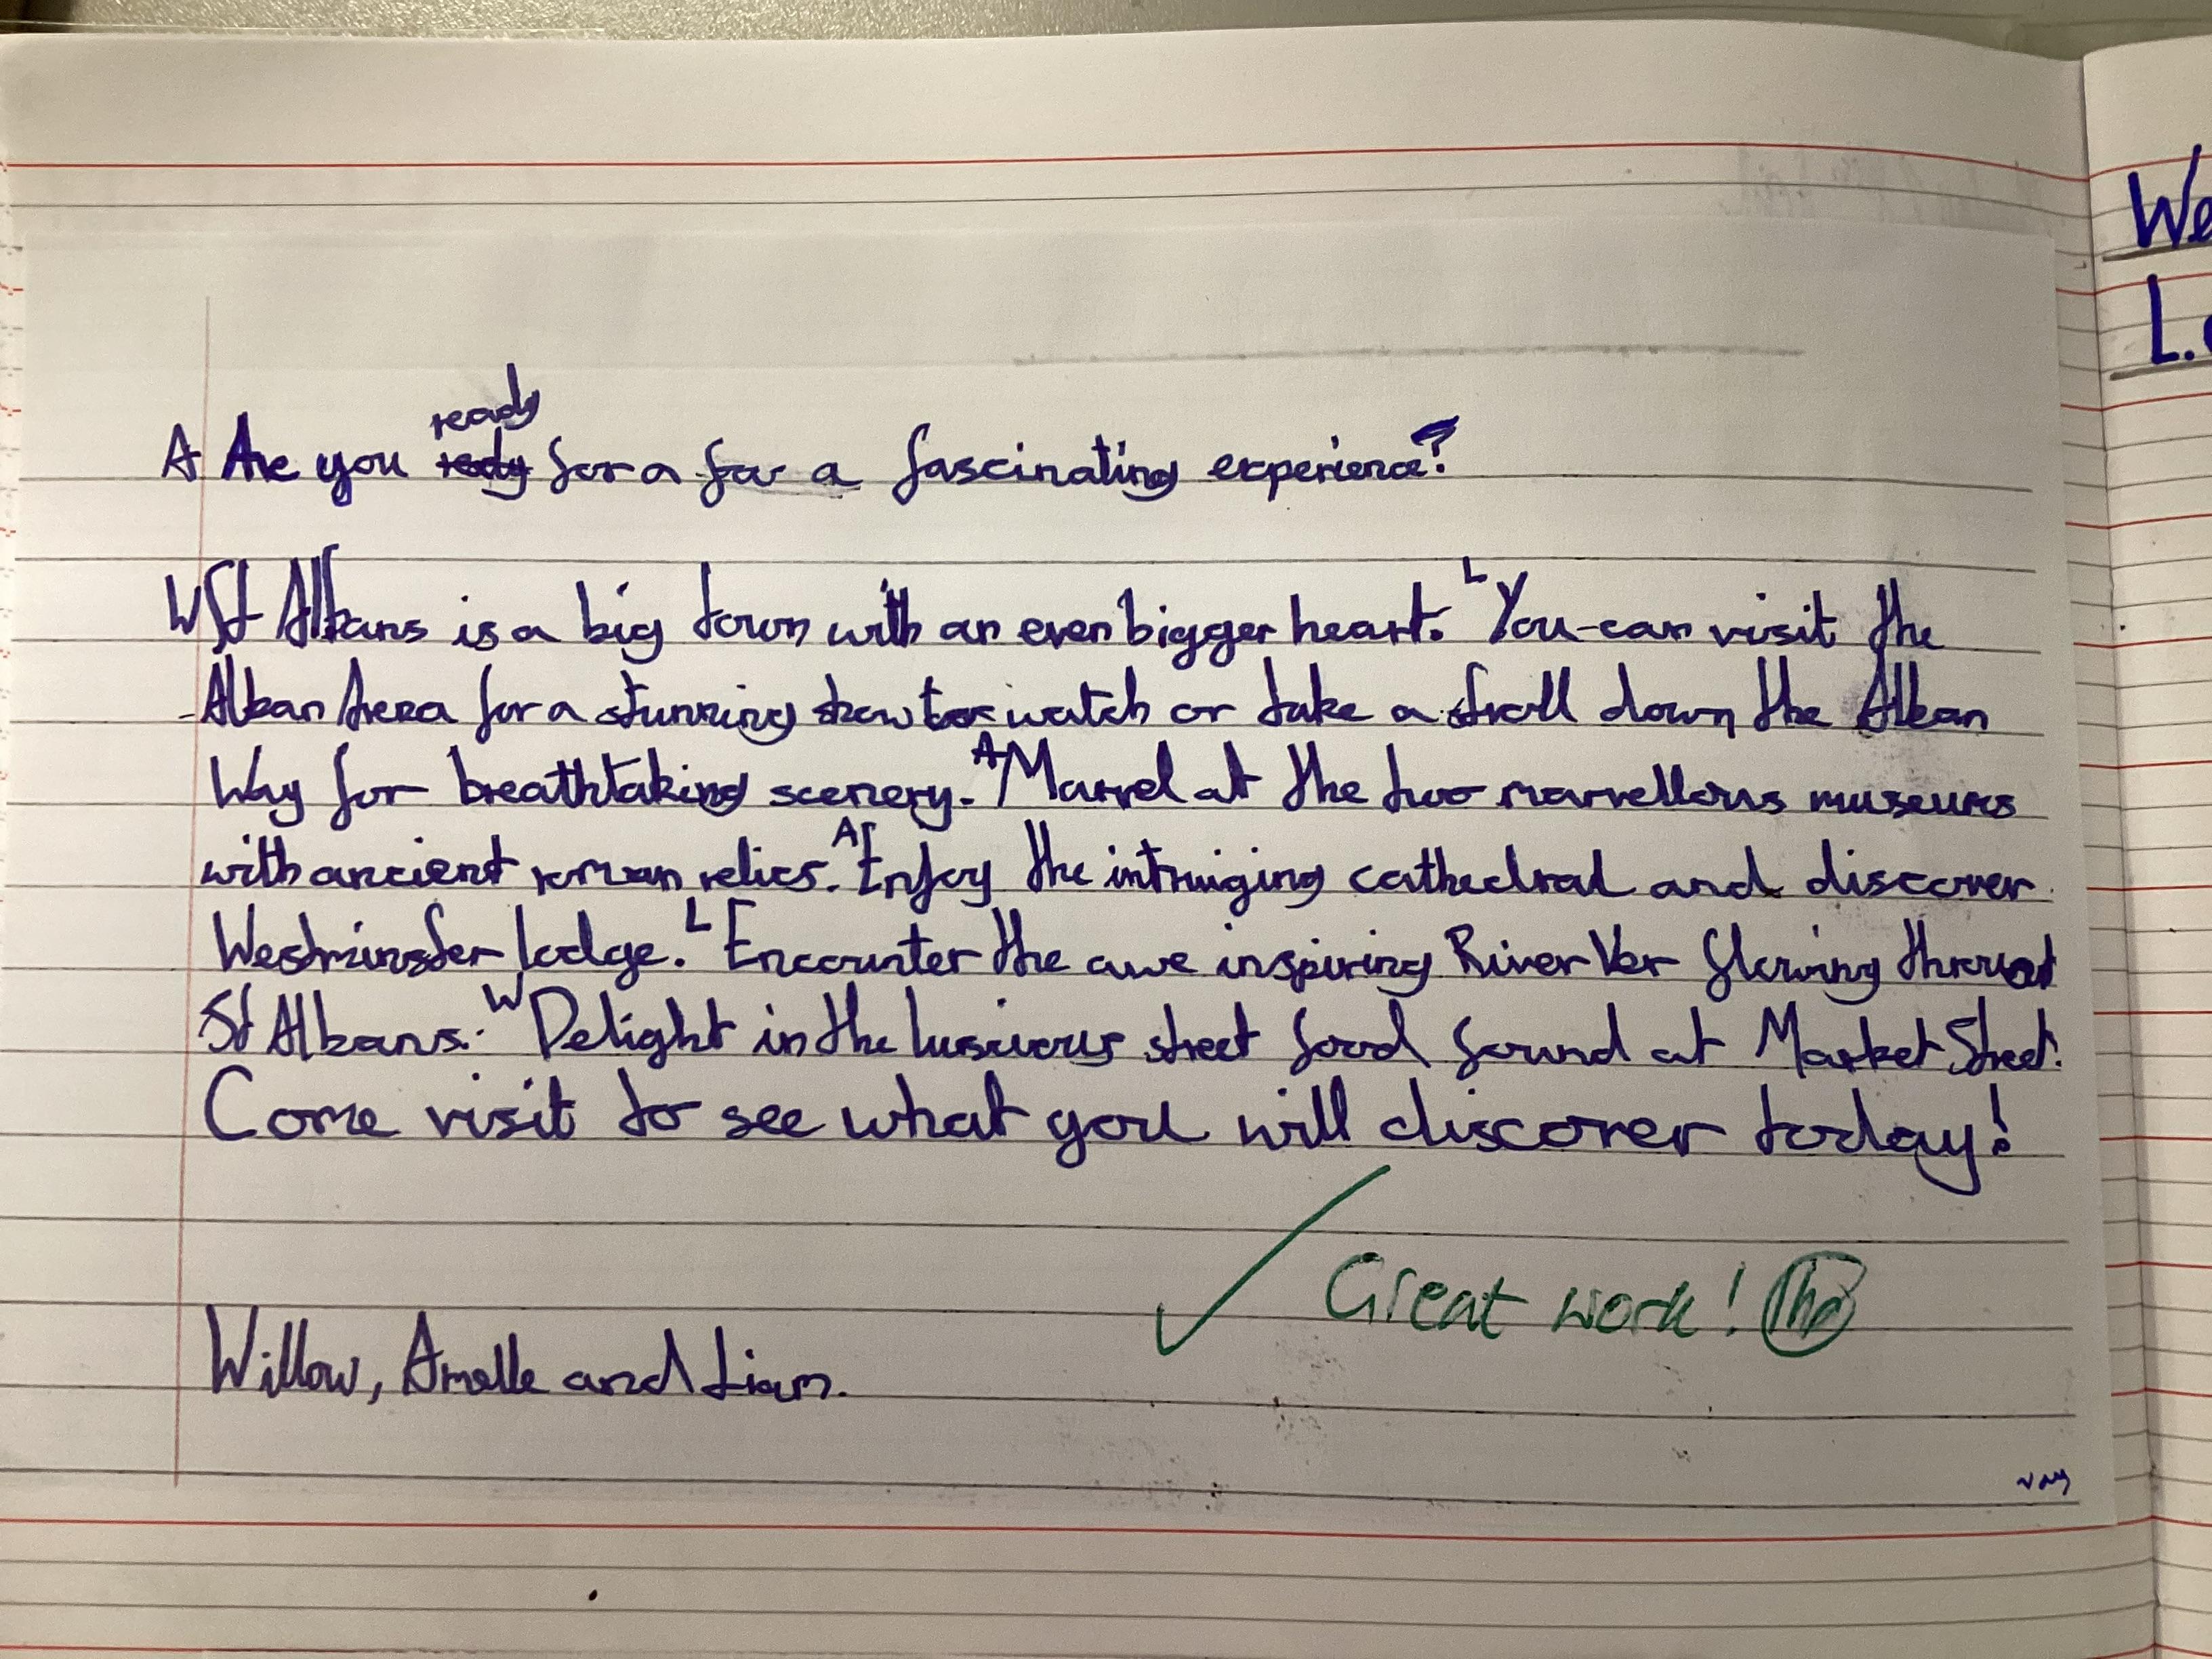 We
L.
ready
A Are you ready for a for a fascinating experience?
W St Albans is a big town with an even bigger heart. L You can visit the
Alban Arena for a stunning show to watch or take a stroll down the Alban
Way for breathtaking scenery. A Marvel at the two marvellous museums
with ancient roman relics. A Enjoy the intruiging cathedral and discover
Westminster lodge. L Encounter the awe inspiring River Ver flowing
St Albans. W Delight in the luscious street food found at Market Street.
Come visit to see what you will discover today!
Great work!
Willow, Amelle and Liam.